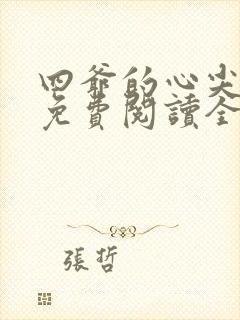 四爺的心尖
免費閱讀全
張哲